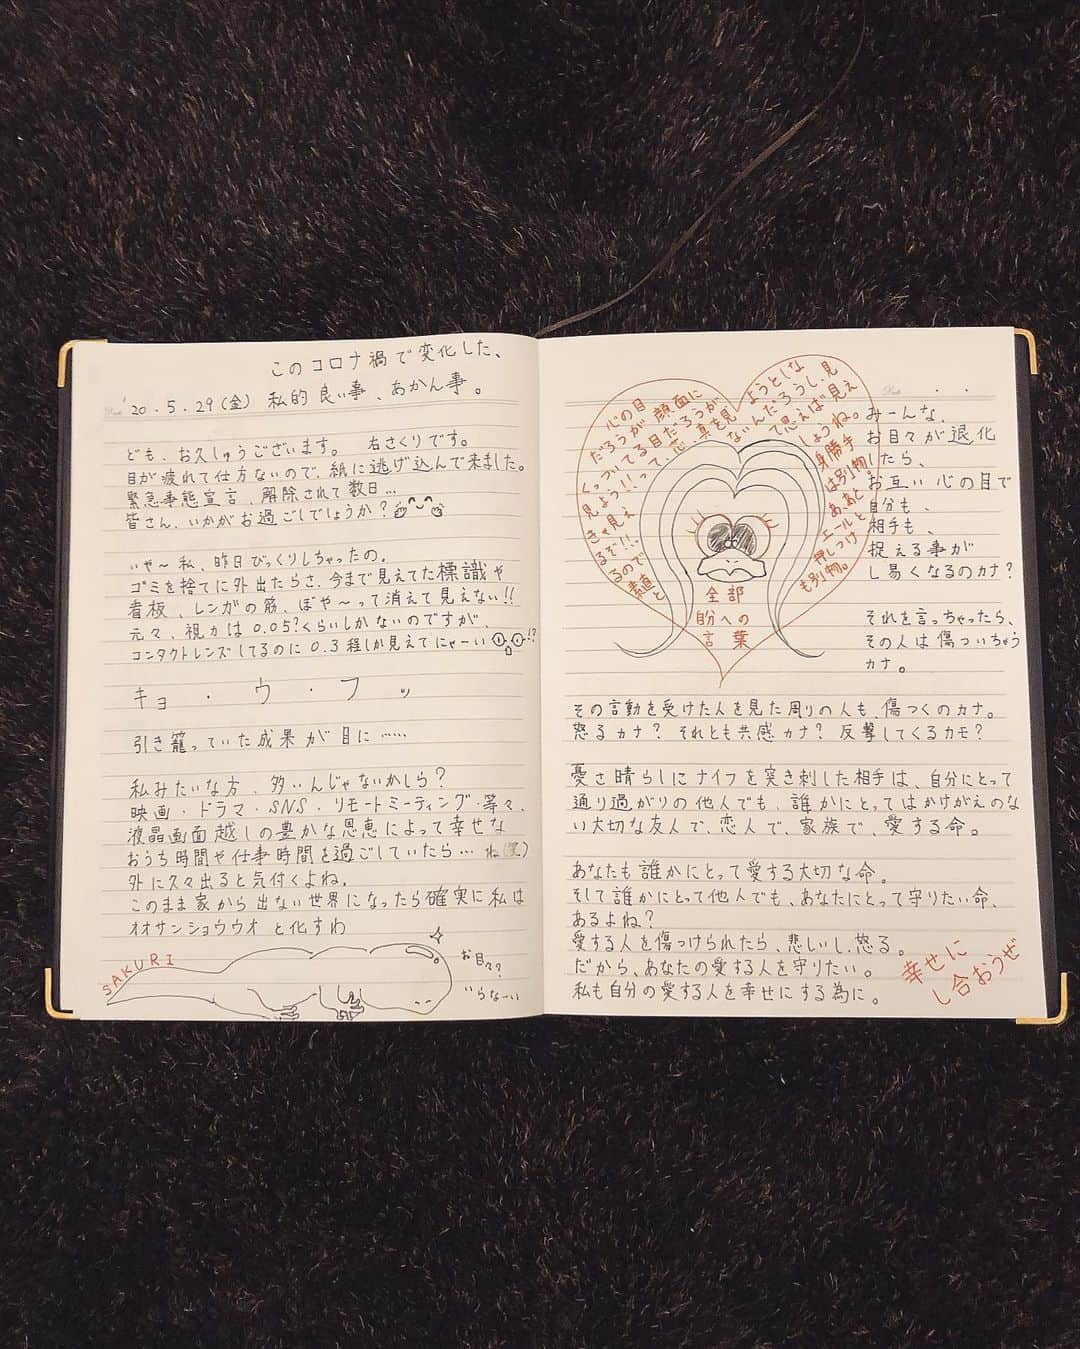 このコロナ禍で変化した、
'20.5.29(金) 私的 良い事、あかん事。
ども、お久しゅうございます。 右さくりです。
目が疲れて仕方ないので、紙に逃げ込んで来ました。
緊急事態宣言、解除されて数日…
皆さん、いかがお過ごしでしょうか?
いや〜私、昨日びっくりしちゃったの。
ゴミを捨てに外出たらさ、今まで見えてた標識や
看板、レンガの筋、ぼや〜って消えて見えない!!
元々、視力は0.05?くらいしかないのですが、
コンタクトレンズしてるのに 0.3程しか見えてにゃーい!?
キョ・ウ・フッ
引き籠っていた成果が目に……
私みたいな方、多いんじゃないかしら?
映画・ドラマ・SNS・リモートミーティング・等々、
液晶画面越しの豊かな恩恵によって幸せな
おうち時間や仕事時間を過ごしていたら…ね(笑)
外に久々出ると気付くよね。
このまま家から出ない世界になったら確実に私は
オオサンショウウオと化すわ
SAKURI
お目々?
いらなーい
Date . .
心の目
だろうが顔面に
くっついてる目だろうが
見よう!!って、志、真を見
きゃ見え
るぞ!!
るので
素直と
ようとしな
ないんだろうし、見
て思えば見え
しょうね。
身勝手
は別物。
あ、あと
エールと
押しつけ
も別物。
全部
自分への
言葉
みーんな、
お目々が退化
したら、
お互い 心の目で
自分も、
相手も、
捉える事が
し易くなるのカナ?
それを言っちゃったら、
その人は傷ついちゃう
カナ。
その言動を受けた人を見た周りの人も、傷つくのカナ。
怒るカナ? それとも共感カナ? 反撃してくるカモ?
憂さ晴らしにナイフを突き刺した相手は、自分にとって
通り過がりの他人でも、誰かにとってはかけがえのな
い大切な友人で、恋人で、家族で、愛する命。
あなたも誰かにとって愛する大切な命。
そして誰かにとって他人でも、あなたにとって守りたい命、
あるよね?
愛する人を傷つけられたら、悲しいし、怒る。
だから、あなたの愛する人を守りたい。
私も自分の愛する人を幸せにする為に。
幸せに
し合おうぜ